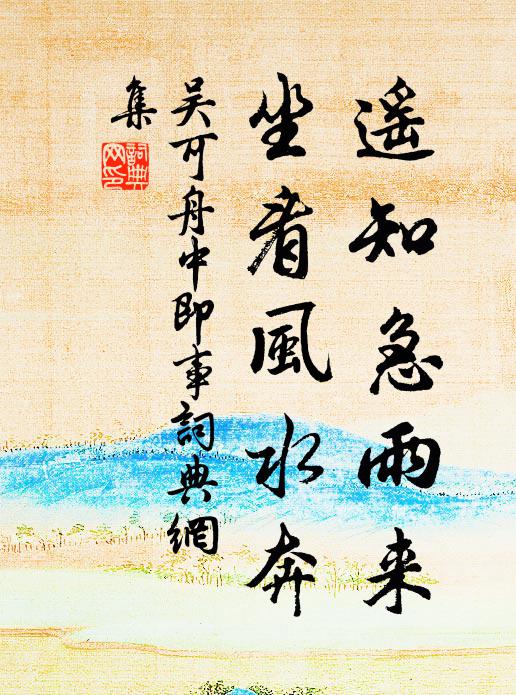 遥知急雨来
坐看風水奔
吴可舟中即事詞典網
集
詞典
网印